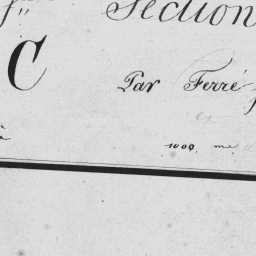 Section
C
Par Ferré
à
1000. me